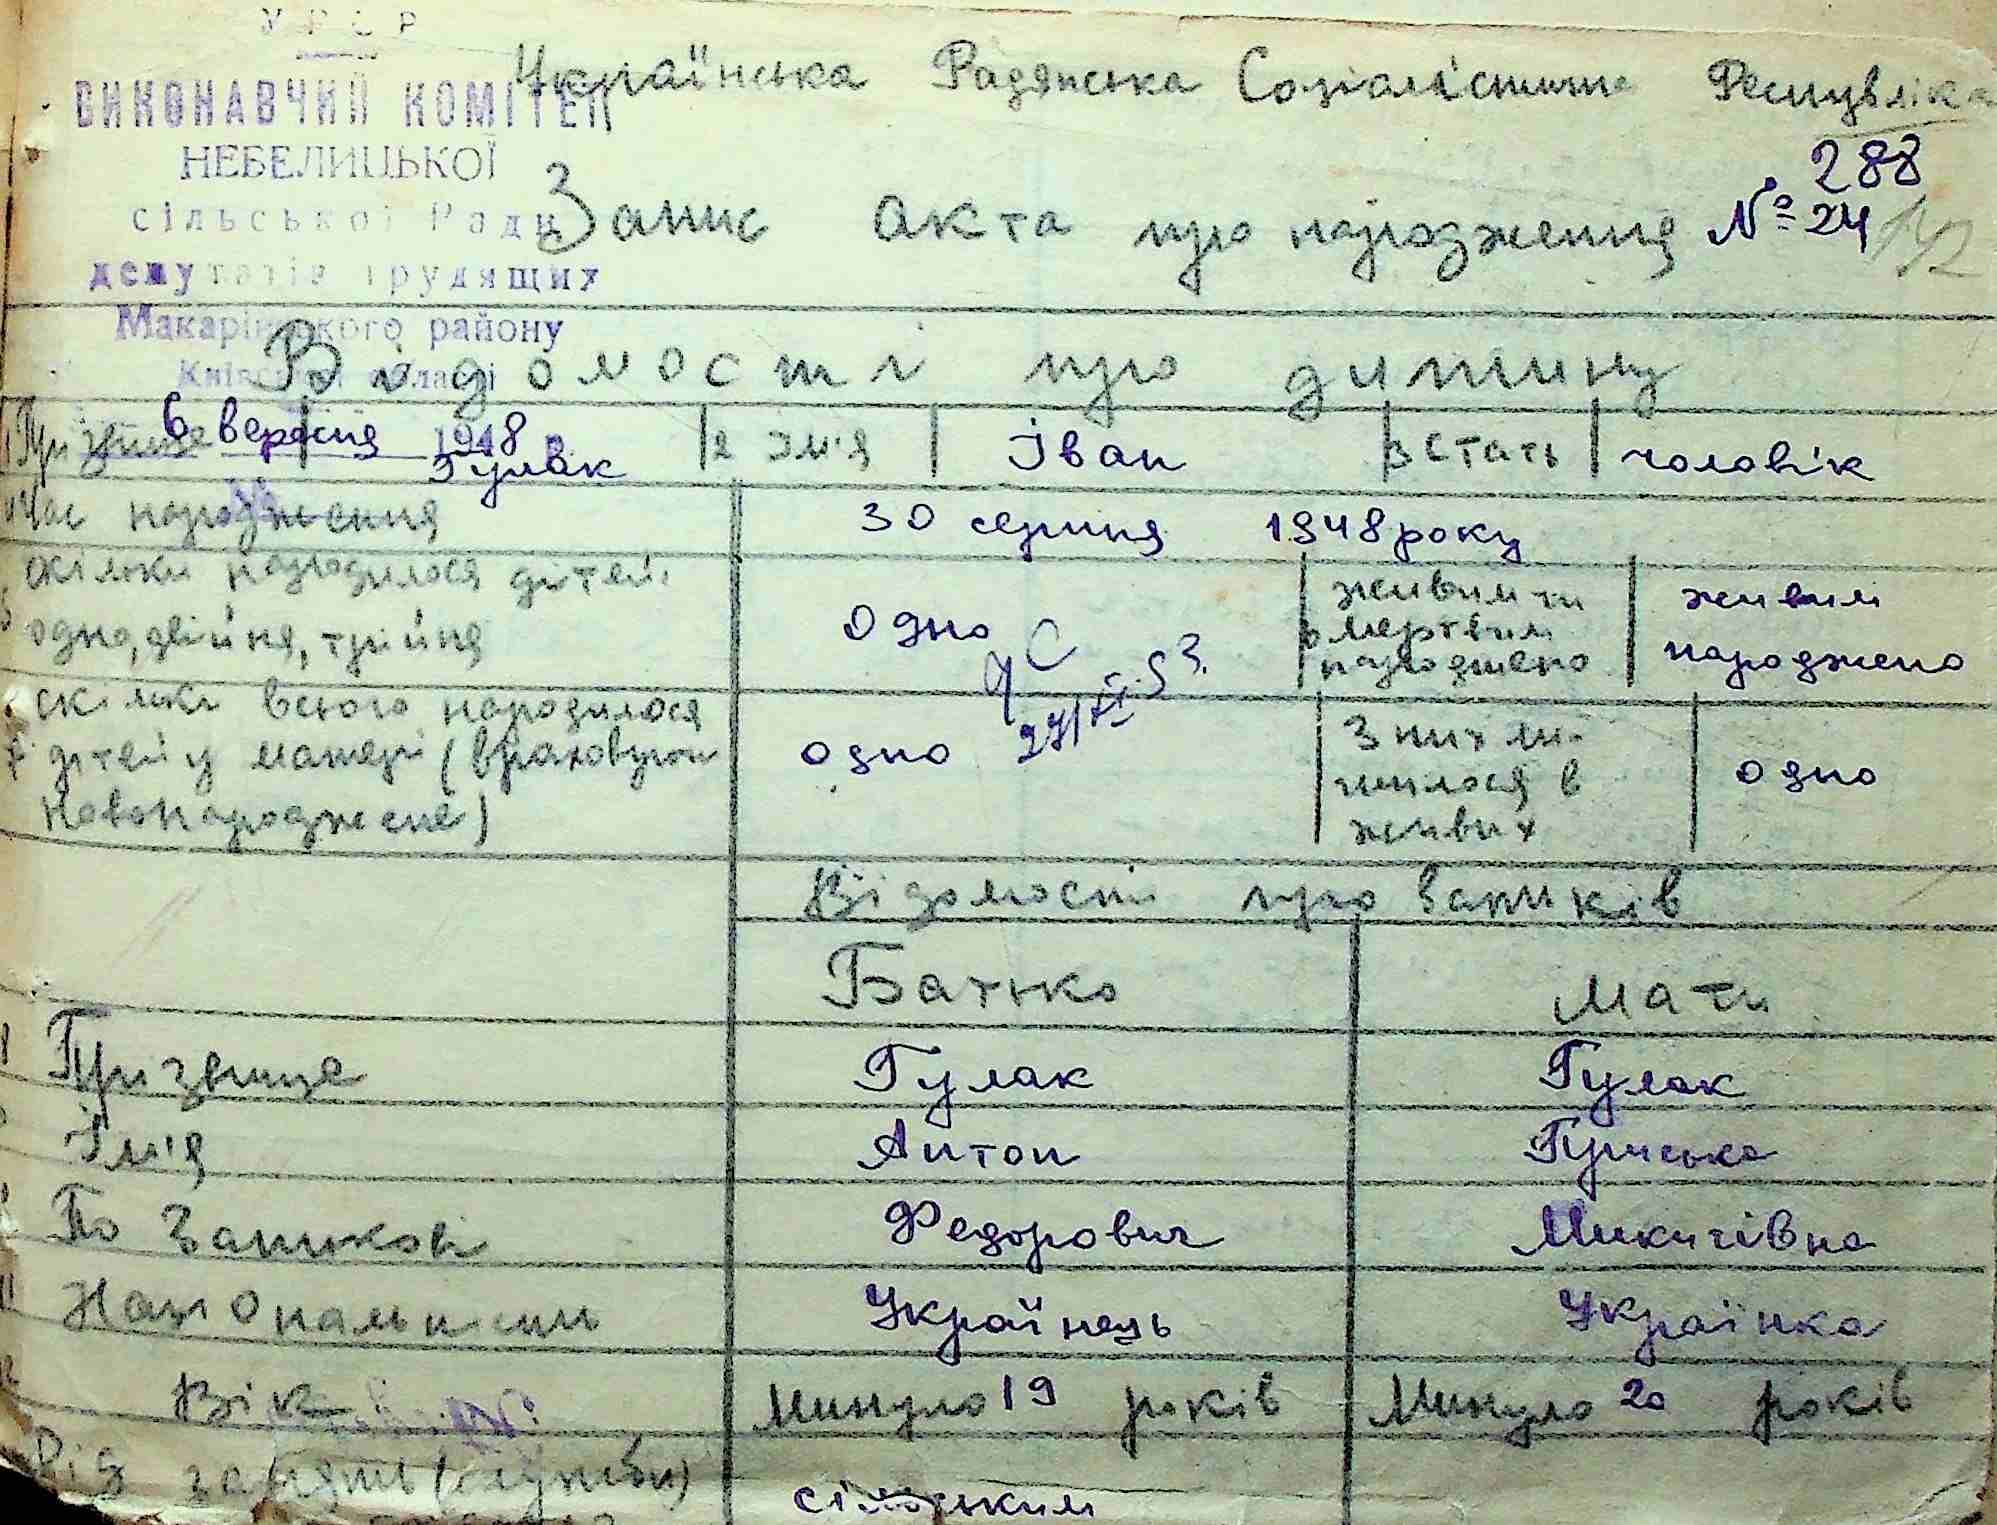 УРСР
ВИКОНАВЧИЙ КОМІТЕТ
НЕБЕЛИЦЬКОЇ
сільської Ради
депутатів трудящих
Макарівського району
Київської області
6 вересня 1948 р.
Українська Радянська Соціалістична Республіка
288
Запис акта про народження № 24
142
Відомості про дитину
1 Призвище Гулак 2 Ім'я Іван 3 Стать чоловік
4 Час народження 30 серпня 1948 року
5 скільки народилося дітей: одно, двійня, трійня
одно
6 живим чи мертвим народжено
живим народжено
7 скільки всього народилося дітей у матері (враховуючи новонароджене)
одно
З них лишилося в живих
одно
Відомости про батьків
Батько Мати
8 Призвище Гулак Гулак
Ім'я Антон Гриська
По батькові Федорович Микитівна
11 Національність Українець Українка
12 Вік Минуло 19 років Минуло 20 років
Рід занять (служби)
сільським